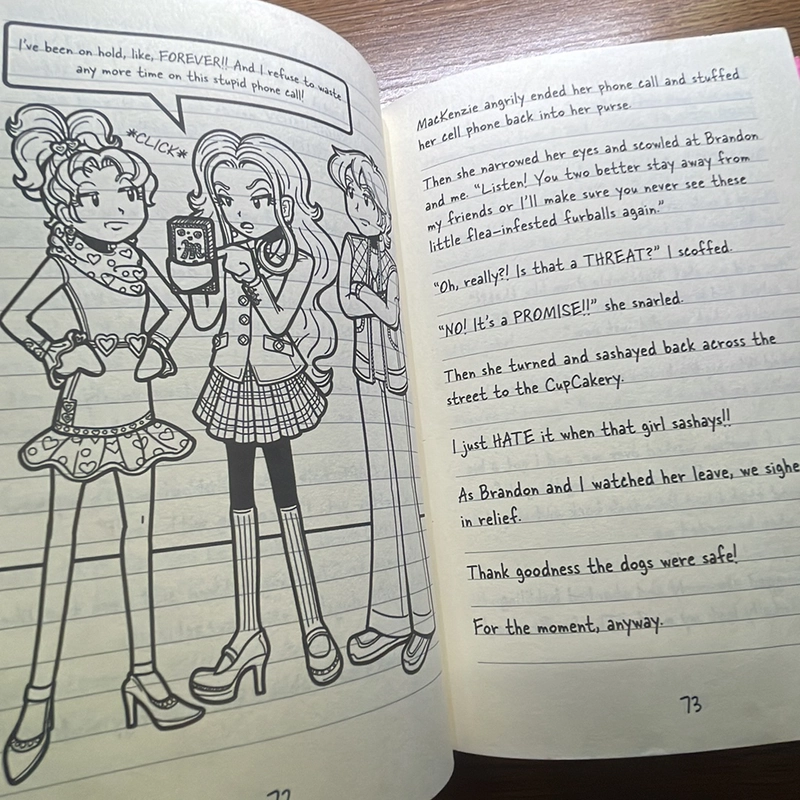 I've been on hold, like, FOREVER!! And I refuse to waste
any more time on this stupid phone call!
*CLICK*
72
MacKenzie angrily ended her phone call and stuffed
her cell phone back into her purse.
Then she narrowed her eyes and scowled at Brandon
and me. "Listen! You two better stay away from
my friends or I'll make sure you never see these
little flea-infested furballs again."
"Oh, really?! Is that a THREAT?" I scoffed.
"NO! It's a PROMISE!!" she snarled.
Then she turned and sashayed back across the
street to the CupCakery.
I just HATE it when that girl sashays!!
As Brandon and I watched her leave, we sighe
in relief.
Thank goodness the dogs were safe!
For the moment, anyway.
73